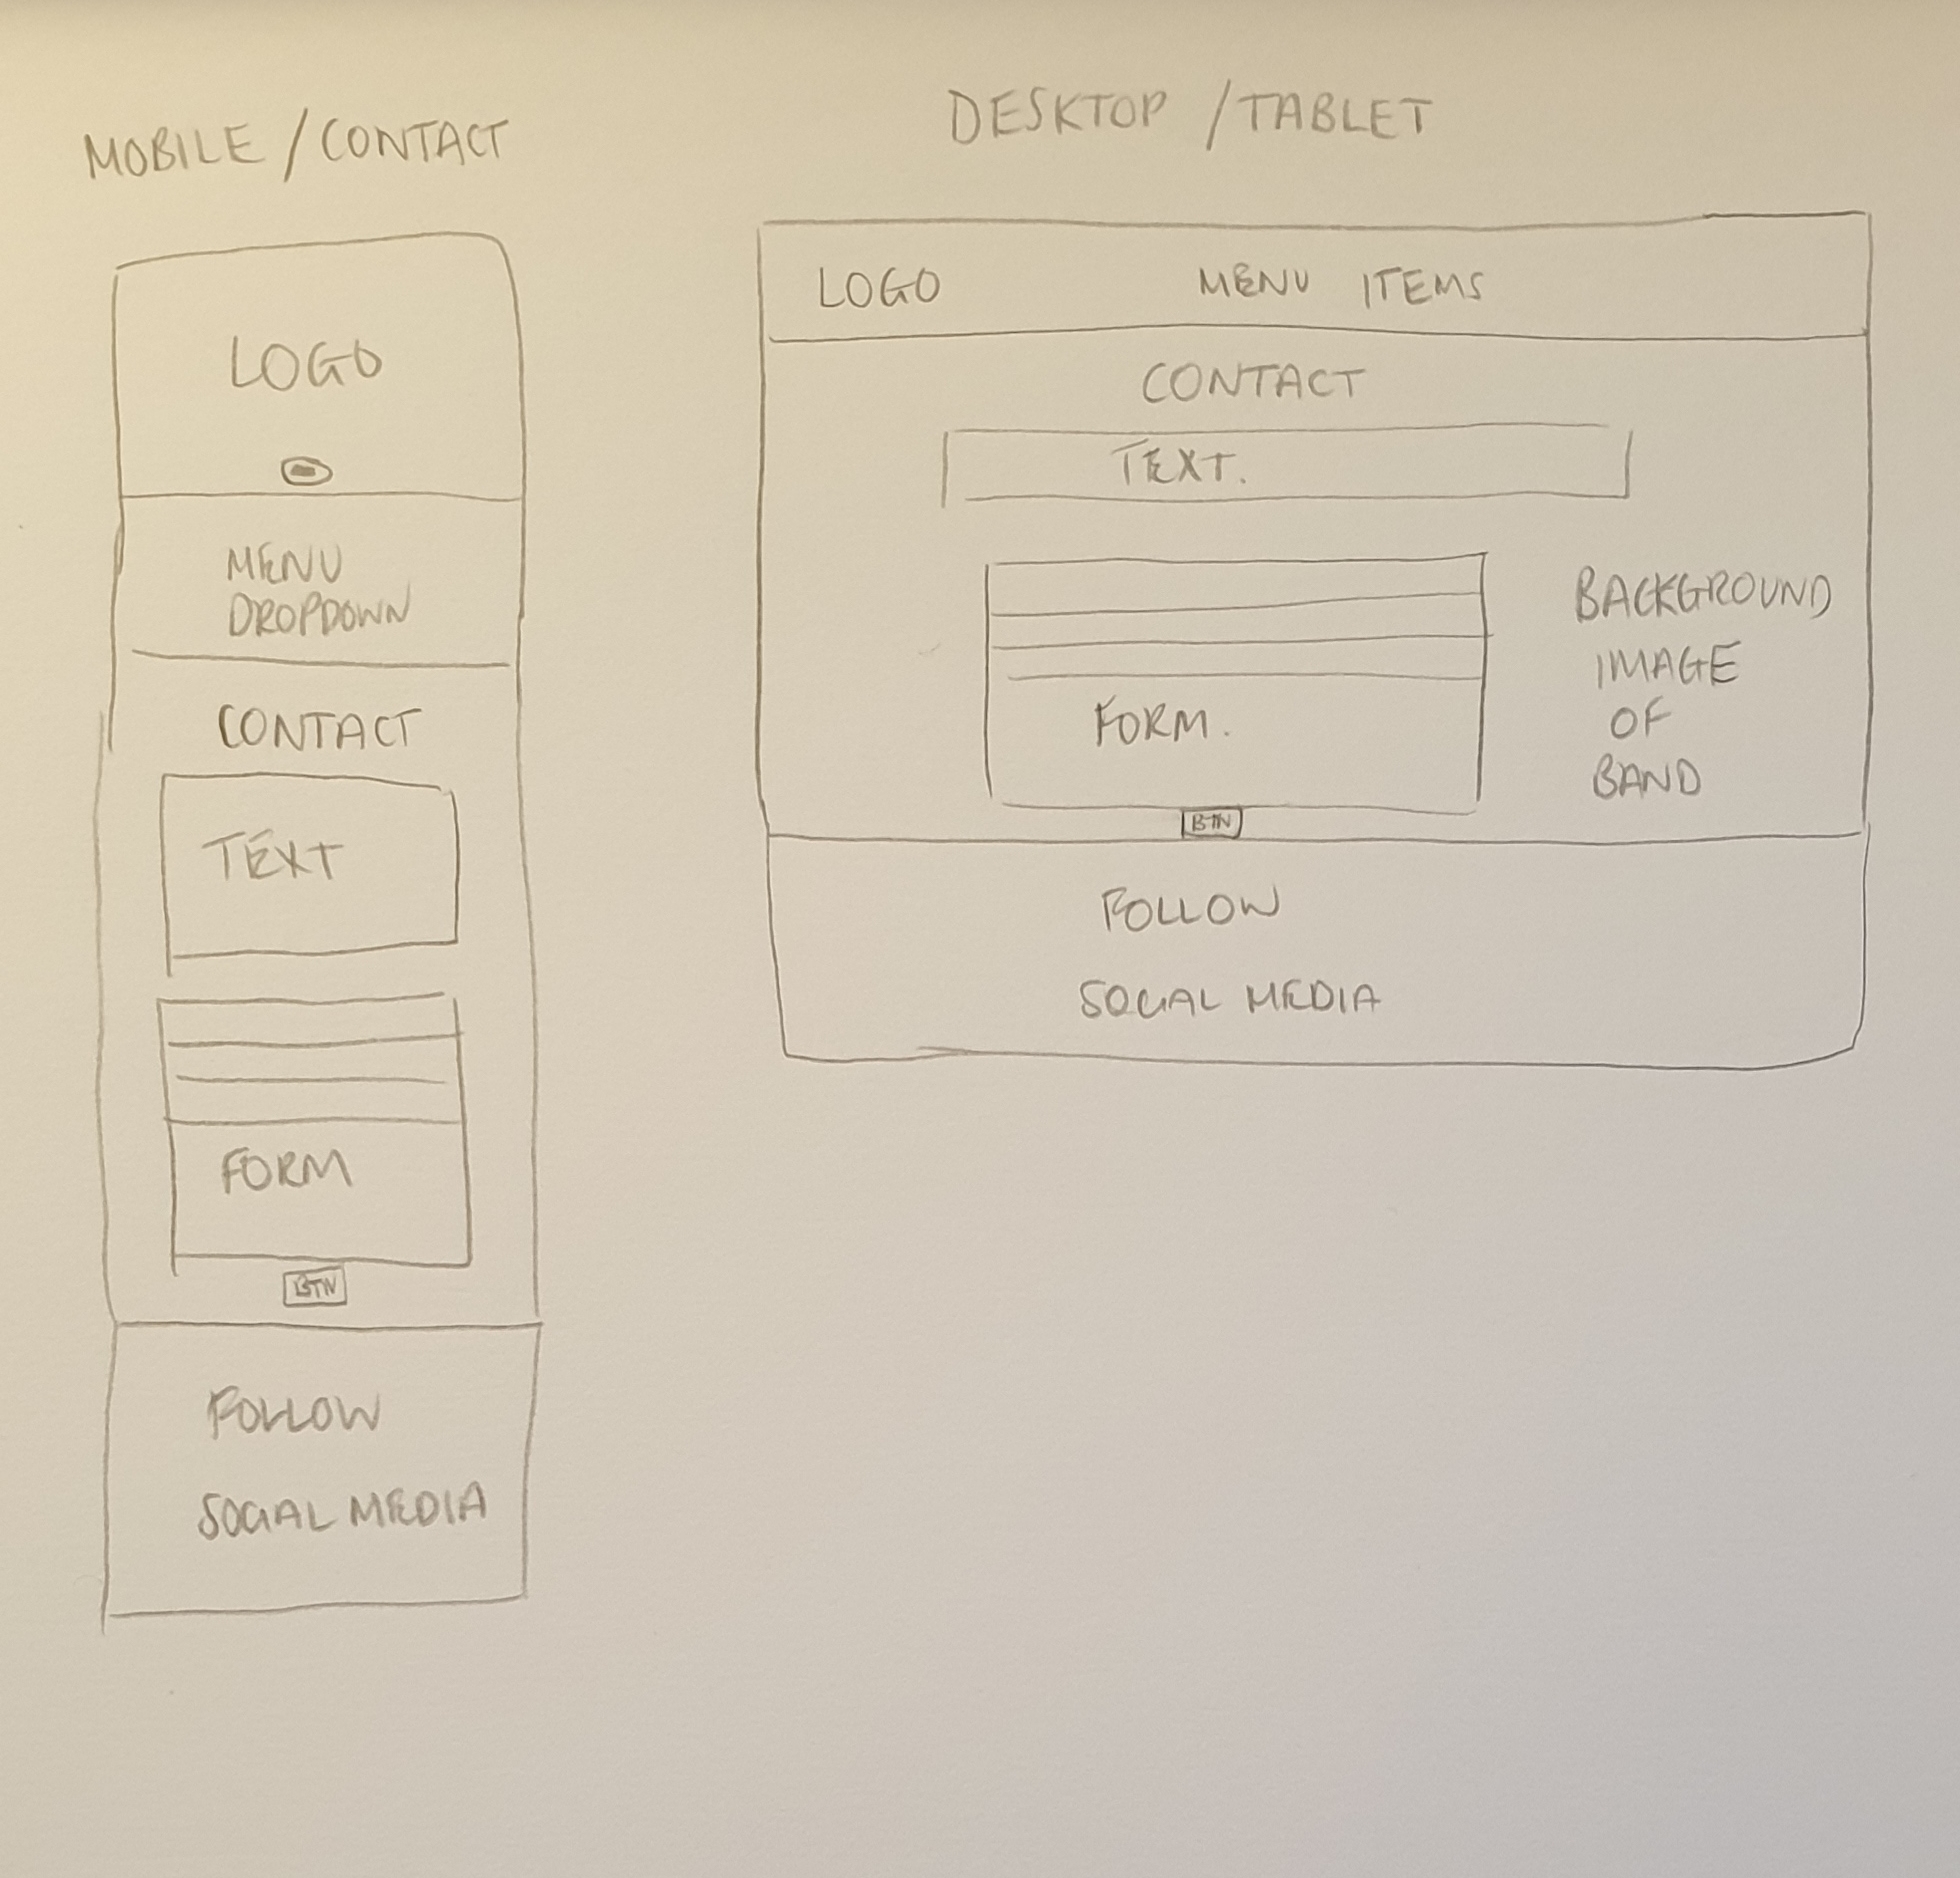 MOBILE / CONTACT
LOGO
MENU
DROPDOWN
CONTACT
TEXT
FORM
BTN
FOLLOW
SOCIAL MEDIA
DESKTOP / TABLET
LOGO MENU ITEMS
CONTACT
TEXT.
FORM.
BTN
BACKGROUND
IMAGE
OF
BAND
FOLLOW
SOCIAL MEDIA